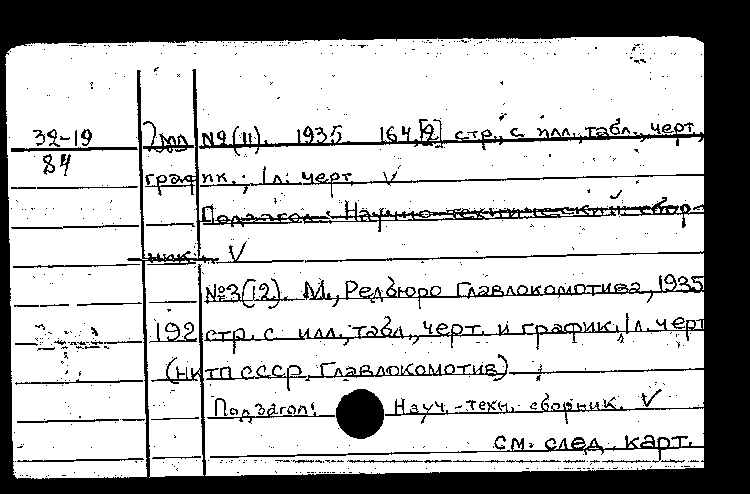 32-19
84
2мл №2(11). 1935 164,[2] стр., с илл., табл., черт,
график.; 1 л. черт. √
Подзагол.: Научно-технический сбор-
ник. √
№3(12). М., Редбюро Главлокомотива, 1935
192 стр. с илл., табл., черт. и график., 1 л. черт
(НКТП СССР. Главлокомотив)
Подзагол: Науч.-техн. сборник. √
см. след. карт.